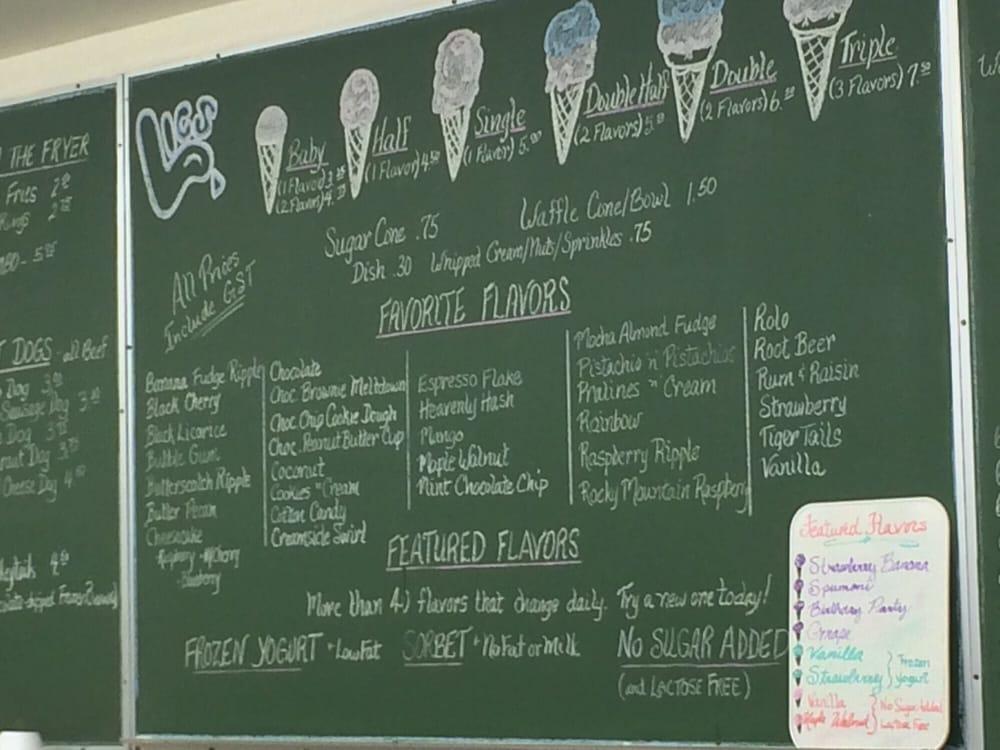 THE FRYER
Fries
DOGS - all Beef
Dog
Sausage Dog
Dog
Dog
Cheese Dog
Baby
(1 Flavor)
(2 Flavors)
Half
(1 Flavor) 4.50
Single
(1 Flavor)
Double Half
(2 Flavors)
Double
(2 Flavors) 6.
Triple
(3 Flavors) 7.
Sugar Cone .75
Waffle Cone/Bowl 1.50
Dish .30 Whipped Cream/Nuts/Sprinkles .75
All Prices
Include GST
FAVORITE FLAVORS
Banana Fudge Ripple
Black Cherry
Black Licorice
Bubble Gum
Butterscotch Ripple
Butter Pecan
Cheesecake
Cherry
Blueberry
Chocolate
Choc Brownie Meltdown
Choc Chip Cookie Dough
Choc. Peanut Butter Cup
Coconut
Cookies n Cream
Cotton Candy
Creamsicle Swirl
Espresso Flake
Heavenly Hash
Mango
Maple Walnut
Mint Chocolate Chip
Mocha Almond Fudge
Pistachio 'n' Pistachios
Pralines n Cream
Rainbow
Raspberry Ripple
Rocky Mountain Raspbery
Rolo
Root Beer
Rum & Raisin
Strawberry
Tiger Tails
Vanilla
FEATURED FLAVORS
More than flavors that change daily. Try a new one today!
FROZEN YOGURT Low Fat
SORBET No Fat or Milk
NO SUGAR ADDED
(and LACTOSE FREE)
Featured Flavors
Strawberry Banana
Spumoni
Birthday Party
Grape
Vanilla
Strawberry
Frozen
Yogurt
Vanilla
Maple Walnut
No Sugar Added
Lactose Free